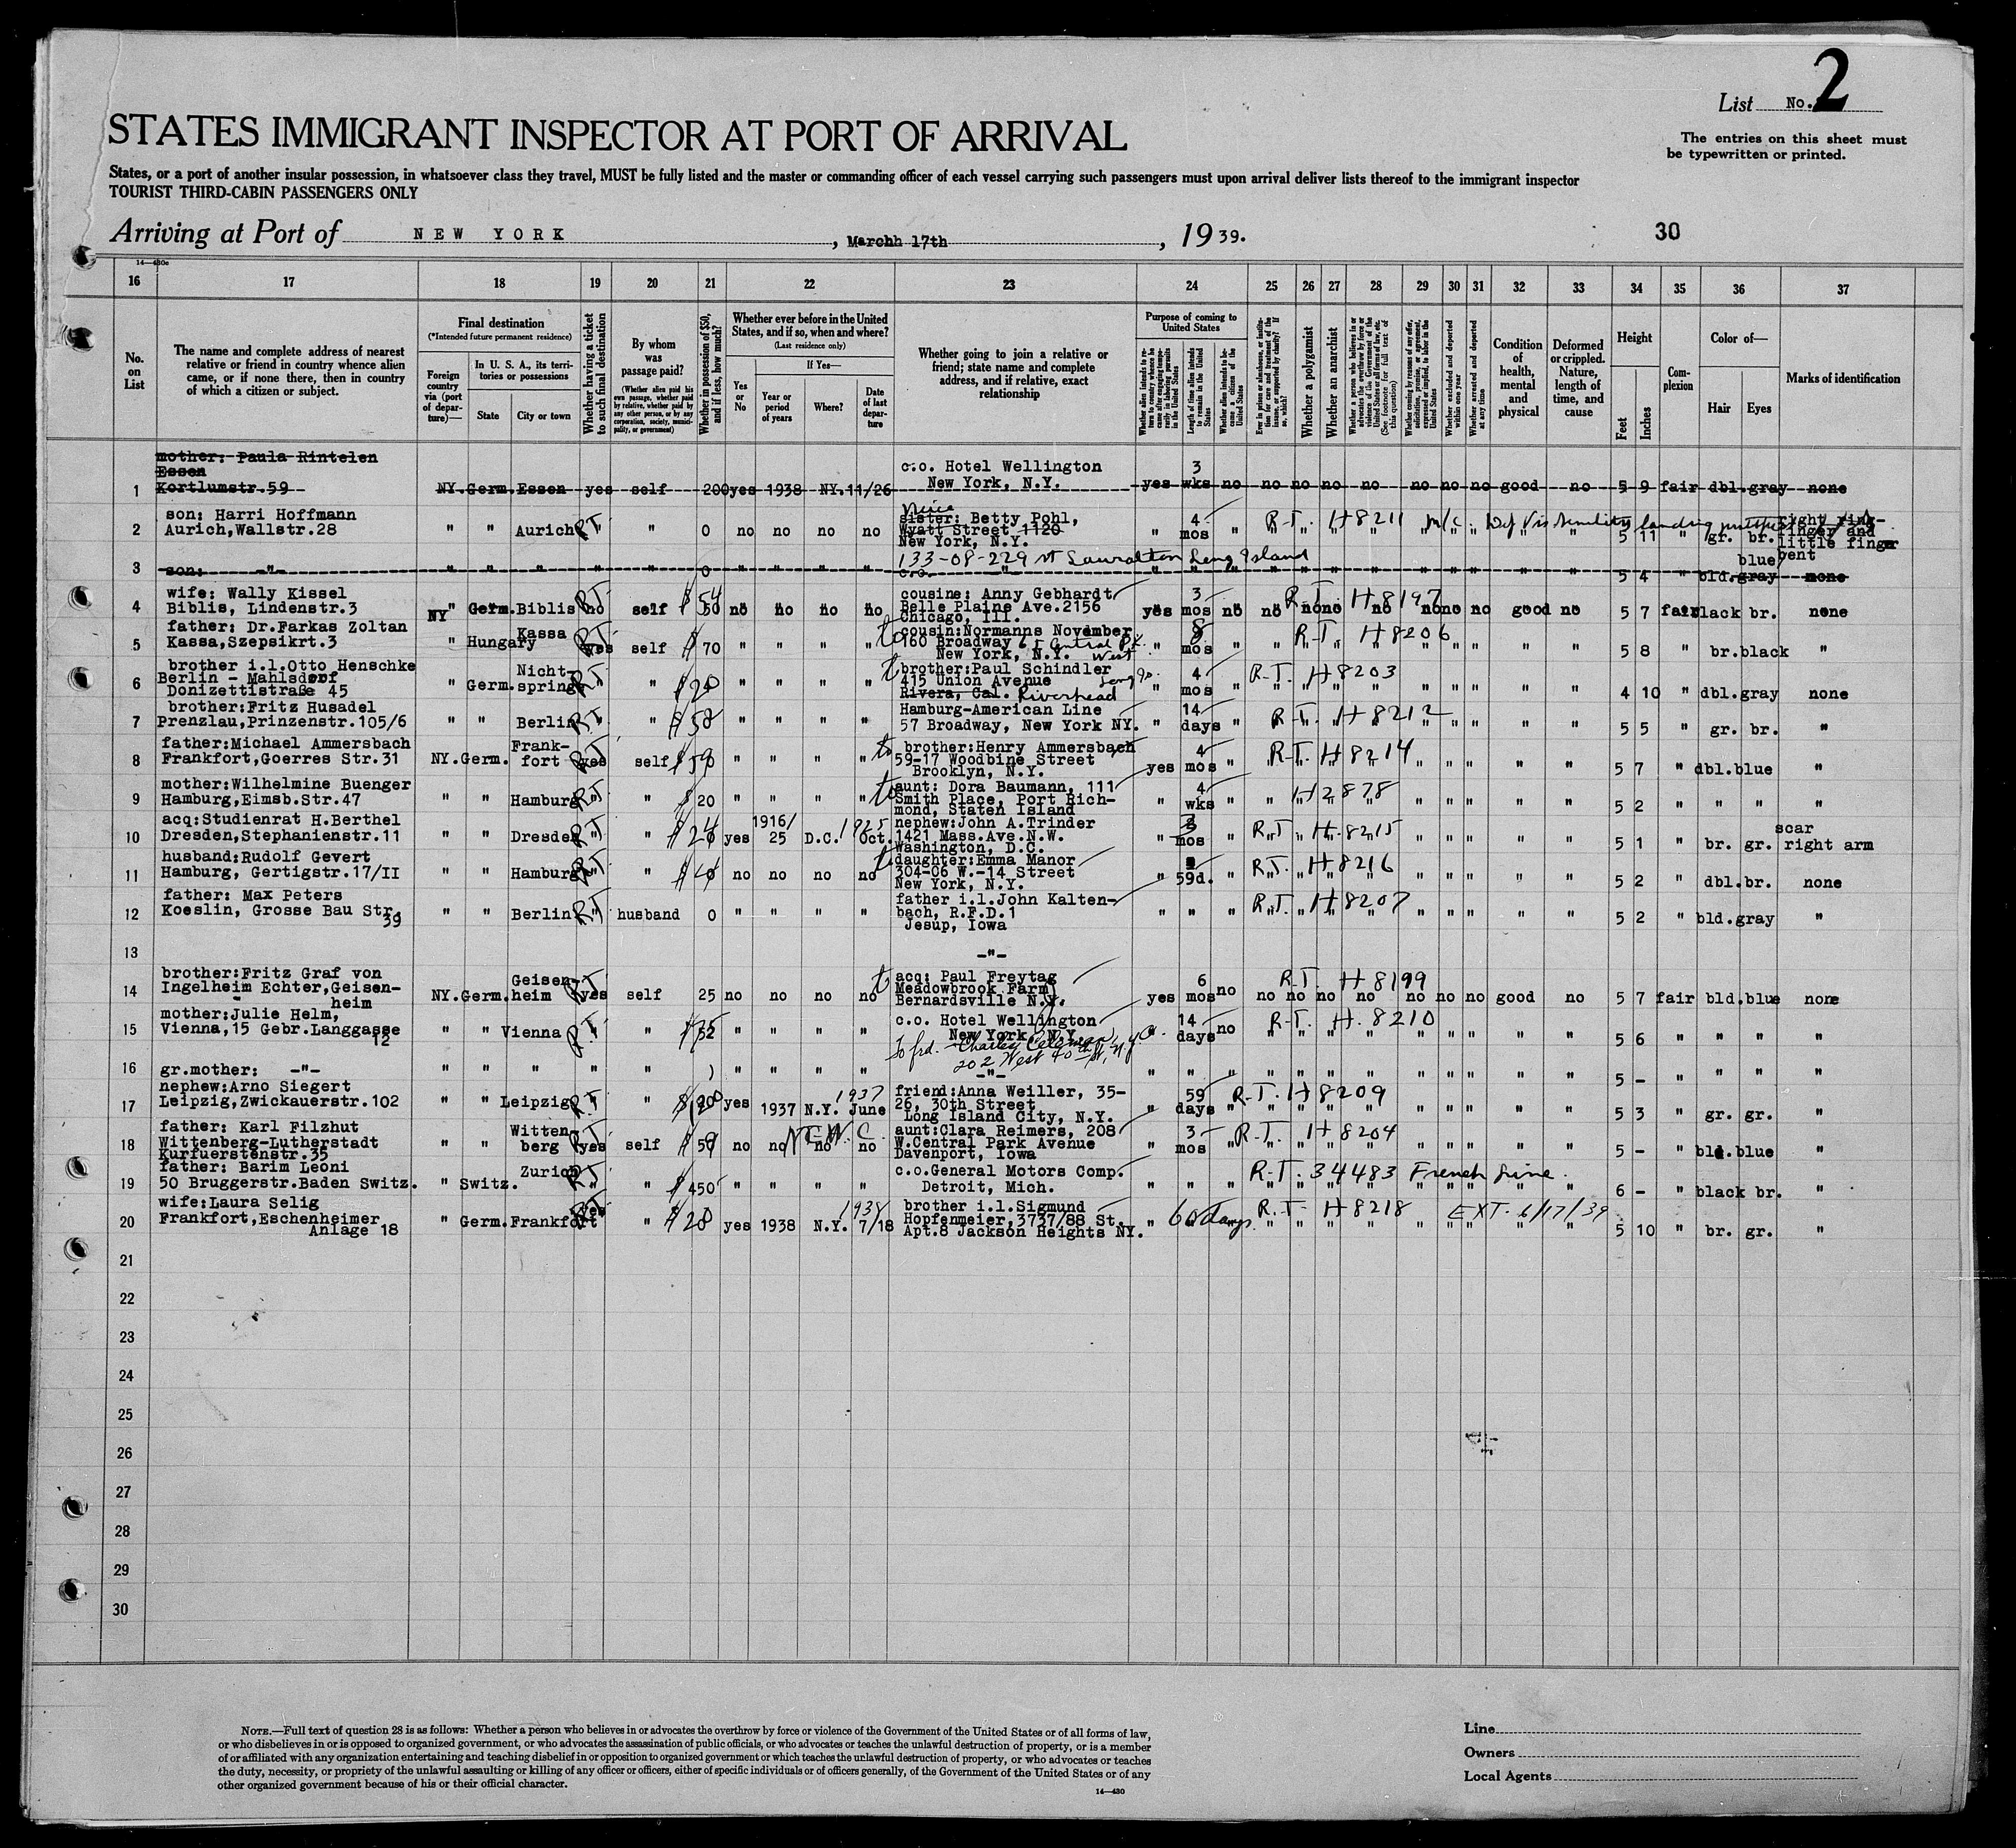 List No. 2
STATES IMMIGRANT INSPECTOR AT PORT OF ARRIVAL
The entries on this sheet must
be typewritten or printed.
States, or a port of another insular possession, in whatsoever class they travel, MUST be fully listed and the master or commanding officer of each vessel carrying such passengers must upon arrival deliver lists thereof to the immigrant inspector
TOURIST THIRD-CABIN PASSENGERS ONLY
Arriving at Port of NEW YORK, Marchh 17th, 1939.
30
16 17 18 19 20 21 22 23 24 25 26 27 28 29 30 31 32 33 34 35 36 37
No.
on
List
The name and complete address of nearest
relative or friend in country whence alien
came, or if none there, then in country
of which a citizen or subject.
Final destination
(*Intended future permanent residence)
Foreign
country
via (port
of depar-
ture)—
In U. S. A., its terri-
tories or possessions
State
City or town
Whether having a ticket
to such final destination
By whom
was
passage paid?
(Whether alien paid his
own passage, whether paid
by relative, whether paid by
any other person, or by any
corporation, society, munici-
pality, or government)
Whether in possession of $50,
and if less, how much?
Whether ever before in the United
States, and if so, when and where?
(Last residence only)
Yes
or
No
If Yes—
Year or
period
of years
Where?
Date
of last
depar-
ture
Whether going to join a relative or
friend; state name and complete
address, and if relative, exact
relationship
Purpose of coming to
United States
Length of time alien intends
to remain in the United
States
Whether a polygamist
Whether an anarchist
Whether excluded and deported
within one year
Whether arrested and deported
at any time
Condition
of
health,
mental
and
physical
Deformed
or crippled.
Nature,
length of
time, and
cause
Height
Feet
Inches
Com-
plexion
Color of—
Hair
Eyes
Marks of identification
1 mother: Paula Rintelen
Essen
Kortlumstr.59
NY. Germ. Essen yes self 200 yes 1938 NY. 11/26
c.o. Hotel Wellington
New York, N.Y.
3
yes wks no no no no no no no no good no 5 9 fair dbl.gray none
2 son: Harri Hoffmann
Aurich,Wallstr.28
" " Aurich RT " " 0 no no no no
Niece
sister: Betty Pohl,
Wyatt Street 1120
New York, N.Y.
133-08-229 st Lauralton Long Island
4
" mos " R-T. H8211
5 11 " gr. br.
right ring-
finger and
little finger
bent
3 son: -"- " " " " " 0 " " " "
c.o. -"-
5 4 " bld.gray none
blue
4 wife: Wally Kissel
Biblis, Lindenstr.3
NY " Germ. Biblis RT no self $54 50 no no no no
cousine: Anny Gebhardt
Belle Plaine Ave.2156
Chicago, Ill.
3
yes mos no no no no no no no no good no R-T. H8197 5 7 fair black br. none
5 father: Dr.Farkas Zoltan
Kassa,Szepsikrt.3
" Hungary Kassa RT yes self $70 " " " "
to cousin:Normanns November
160 Broadway 65 Central Pk.
New York, N.Y. West
8
" mos " R-T. H8206 5 8 " br.black "
6 brother i.l.Otto Henschke
Berlin - Mahlsdorf
Donizettistraße 45
" Germ. Nicht-
spring RT " $20 " " " "
to brother:Paul Schindler
415 Union Avenue
Rivera, Cal. Riverhead
4
" mos " R-T. H8203 4 10 " dbl.gray none
7 brother:Fritz Husadel
Prenzlau,Prinzenstr.105/6
" " Berlin RT " $58 " " " "
Hamburg-American Line
57 Broadway, New York NY.
14
" days " R-T. H8212 5 5 " gr. br. "
8 father:Michael Ammersbach
Frankfort,Goerres Str.31
NY.Germ. Frank-
fort RT yes self $50 " " " "
to brother:Henry Ammersbach
59-17 Woodbine Street
Brooklyn, N.Y.
4
yes mos " R-T. H8214 5 7 " dbl.blue "
9 mother:Wilhelmine Buenger
Hamburg,Eimsb.Str.47
" " Hamburg RT " $20 " " " "
to aunt: Dora Baumann, 111
Smith Place, Port Rich-
mond, Staten Island
4
" wks " H2878 5 2 " " " "
10 acq:Studienrat H.Berthel
Dresden,Stephanienstr.11
" " Dresden RT " $24 yes 1916/
25 D.C. 1925 Oct.
nephew:John A.Trinder
1421 Mass.Ave.N.W.
Washington, D.C.
3
" mos " R.T. H-8215 5 1 " br. gr. scar
right arm
11 husband:Rudolf Gevert
Hamburg, Gertigstr.17/II
" " Hamburg RT " no no no no
to daughter:Emma Manor
304-06 W.-14 Street
New York, N.Y.
" 59d. " R.T. H8216 5 2 " dbl.br. none
12 father: Max Peters
Koeslin, Grosse Bau Str.
39
" " Berlin RT husband 0 " " " "
father i.l.John Kalten-
bach, R.F.D.1
Jesup, Iowa
" " " R.T. H8207 5 2 " bld.gray "
13 -"-
14 brother:Fritz Graf von
Ingelheim Echter,Geisen-
heim
NY.Germ. Geisen-
heim RT yes self 25 no no no no
to acq: Paul Freytag
Meadowbrook Farm
Bernardsville N.Y.
6
yes mos no R.T. H8199
no no no no no no no good no 5 7 fair bld.blue none
15 mother:Julie Helm,
Vienna,15 Gebr.Langgasse
12
" " Vienna RT " " " " "
c.o. Hotel Wellington
New York, N.Y.
To frd. Charley Coleman
202 West 40th St, N.Y.C.
14
" days no R-T. H.8210 5 6 " " " "
16 gr.mother: -"- " " " " " " " " "
-"-
" " " 5 - " " " "
17 nephew:Arno Siegert
Leipzig,Zwickauerstr.102
" " Leipzig RT " yes 1937 N.Y. 1937 June
friend:Anna Weiller, 35-
26, 30th Street
Long Island City, N.Y.
59
" days " R-T. H8209 5 3 " gr. gr. "
18 father: Karl Filzhut
Wittenberg-Lutherstadt
Kurfuerstenstr.35
" " Witten-
berg RT yes self $50 no no no no
aunt:Clara Reimers, 208
W.Central Park Avenue
Davenport, Iowa
3
" mos R-T. H8204 5 - " bld.blue "
19 father: Barim Leoni
50 Bruggerstr.Baden Switz.
" Switz. Zurich RT " $450 " " " "
c.o.General Motors Comp.
Detroit, Mich.
" " " R.T. 34483 French Line. 6 - " black br. "
20 wife:Laura Selig
Frankfort,Eschenheimer
Anlage 18
" Germ.Frankfort RT yes " $20 yes 1938 N.Y. 1938 7/18
brother i.l.Sigmund
Hopfenmeier,3737/88 St.
Apt.8 Jackson Heights NY.
" 60 days R-T H8218 EXT. 6/17/39 5 10 " br. gr. "
21
22
23
24
25
26
27
28
29
30
NOTE.—Full text of question 28 is as follows: Whether a person who believes in or advocates the overthrow by force or violence of the Government of the United States or of all forms of law,
or who disbelieves in or is opposed to organized government, or who advocates the assassination of public officials, or who advocates or teaches the unlawful destruction of property, or is a member
of or affiliated with any organization entertaining and teaching disbelief in or opposition to organized government or which teaches the unlawful destruction of property, or who advocates or teaches
the duty, necessity, or propriety of the unlawful assaulting or killing of any officer or officers, either of specific individuals or of officers generally, of the Government of the United States or of any
other organized government because of his or their official character.
14—430
Line
Owners
Local Agents